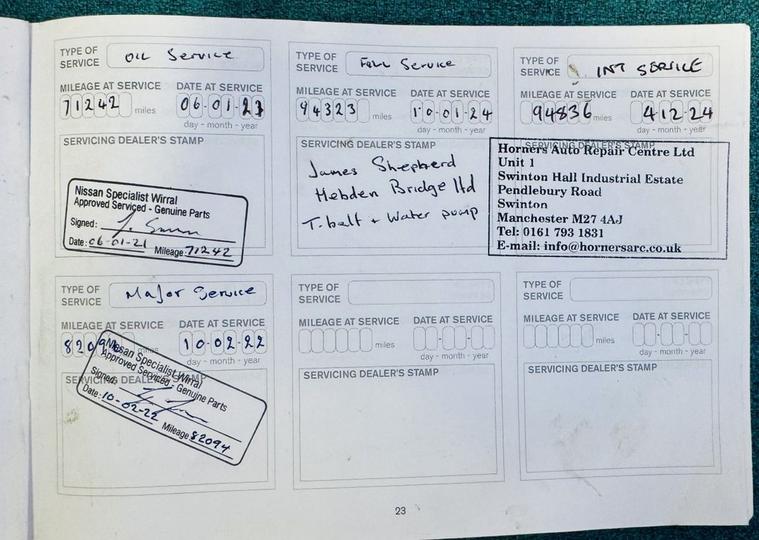 TYPE OF SERVICE OIL Service
MILEAGE AT SERVICE DATE AT SERVICE
71242 miles 06-01-21
day - month - year
SERVICING DEALER'S STAMP
Nissan Specialist Wirral
Approved Serviced - Genuine Parts
Signed:
Date: 06-01-21 Mileage 71242
TYPE OF SERVICE Full Service
MILEAGE AT SERVICE DATE AT SERVICE
94323 miles 10-01-24
day - month - year
SERVICING DEALER'S STAMP
James Shepherd
Hebden Bridge ltd
T.belt + Water pump
TYPE OF SERVICE INT SERVICE
MILEAGE AT SERVICE DATE AT SERVICE
94836 miles 4 12-24
day - month - year
SERVICING DEALER'S STAMP
Horners Auto Repair Centre Ltd
Unit 1
Swinton Hall Industrial Estate
Pendlebury Road
Swinton
Manchester M27 4AJ
Tel: 0161 793 1831
E-mail: info@hornersarc.co.uk
TYPE OF SERVICE Major Service
MILEAGE AT SERVICE DATE AT SERVICE
82094 miles 10-02-22
day - month - year
SERVICING DEALER'S STAMP
Nissan Specialist Wirral
Approved Serviced - Genuine Parts
Signed:
Date: 10-02-22 Mileage 82094
TYPE OF SERVICE
MILEAGE AT SERVICE DATE AT SERVICE
miles
day - month - year
SERVICING DEALER'S STAMP
TYPE OF SERVICE
MILEAGE AT SERVICE DATE AT SERVICE
miles
day - month - year
SERVICING DEALER'S STAMP
23